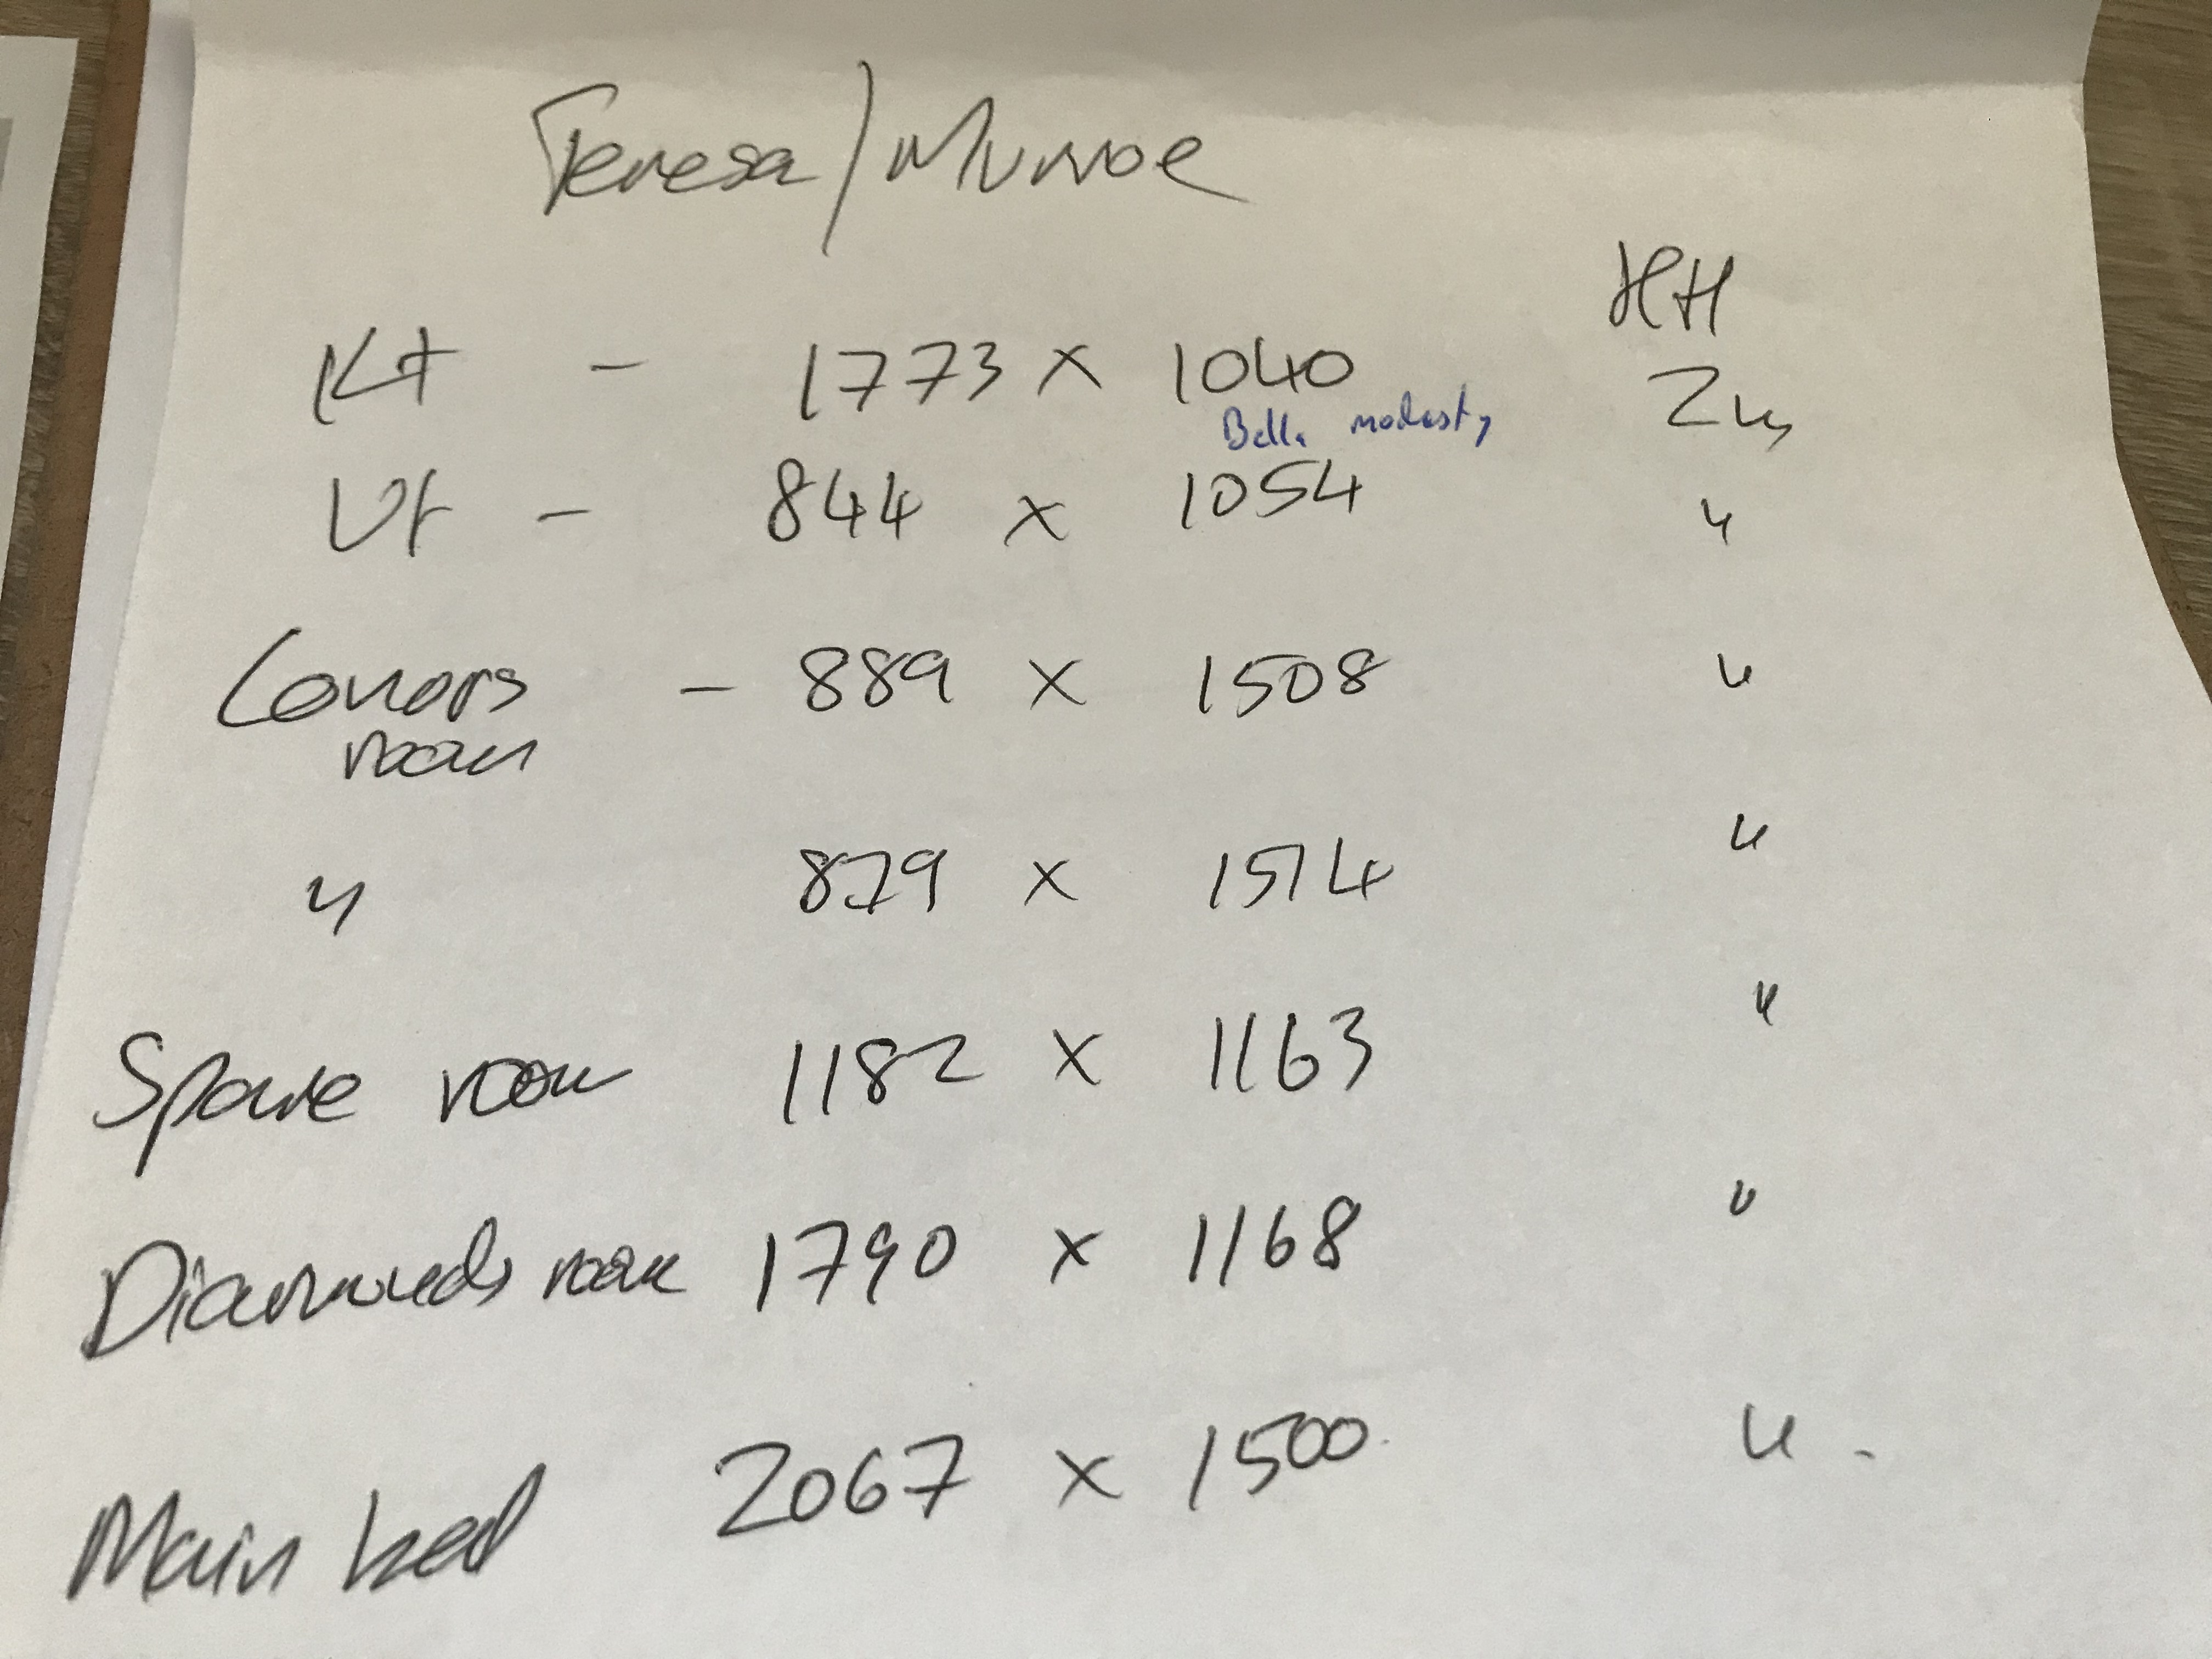 Teresa / Munroe
HH
Kt - 1773 x 1040 2m
Bella modesty
Ut - 844 x 1054 "
Conors - 889 x 1508 "
room
" 879 x 1514 "
Spare room 1182 x 1163 "
Diamonds room 1790 x 1168 "
Main bed 2067 x 1500 "